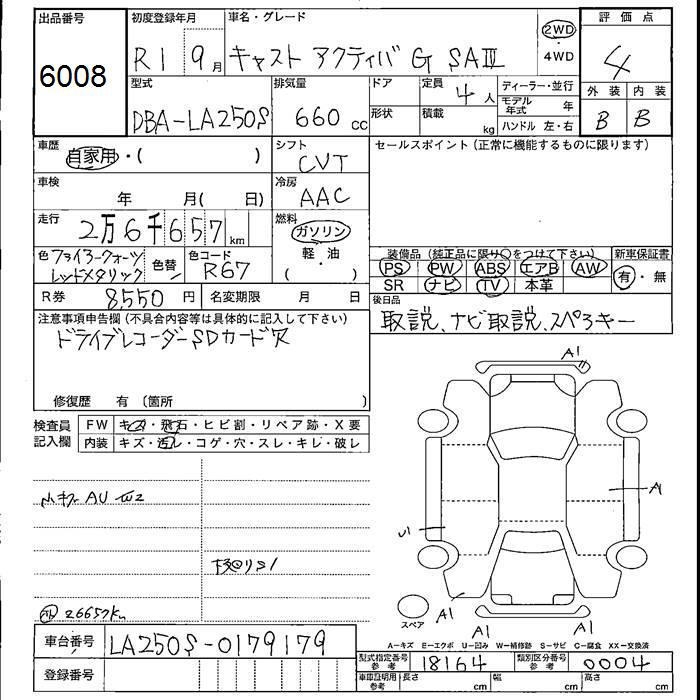 出品番号 初度登録年月 車名・グレード 2WD 評価点
6008 R1 9月 キャスト アクティバ G SAⅢ ・4WD 4
型式 排気量 ドア 定員 4人 ディーラー・並行 外装 内装
DBA-LA250S 660cc 形状 積載 kg モデル年式 年 B B
ハンドル 左・右
車歴 自家用・( ) シフト CVT セールスポイント(正常に機能するものに限ります)
車検 年 月( 日) 冷房 AAC
走行 2万6千657km 燃料 ガソリン
軽・油
( )
色 ファイアークォーツレッドメタリック 色替 色コード R67 装備品(純正品に限り○をつけて下さい) 新車保証書
PS PW ABS エアB AW 有・無
SR ナビ TV 本革
R券 8,550円 名変期限 月 日 後日品
取説、ナビ取説、スペアキー
注意事項申告欄(不具合内容等は具体的に記入して下さい)
ドライブレコーダーSDカード欠
修復歴 有(箇所 )
A1
検査員 FW キズ・飛石・ヒビ割・リペア跡・X要
記入欄 内装 キズ・汚レ・コゲ・穴・スレ・キレ・破レ
AU A1
26657km
スペア A1 A1 A1
A=キズ E=エクボ U=凹み W=補修跡 S=サビ C=腐食 XX=交換済
車台番号 LA250S-0179179 型式指定番号 参考 18164 類別区分番号 参考 0004
登録番号 車庫証明用 参考 長さ cm 幅 cm 高さ cm